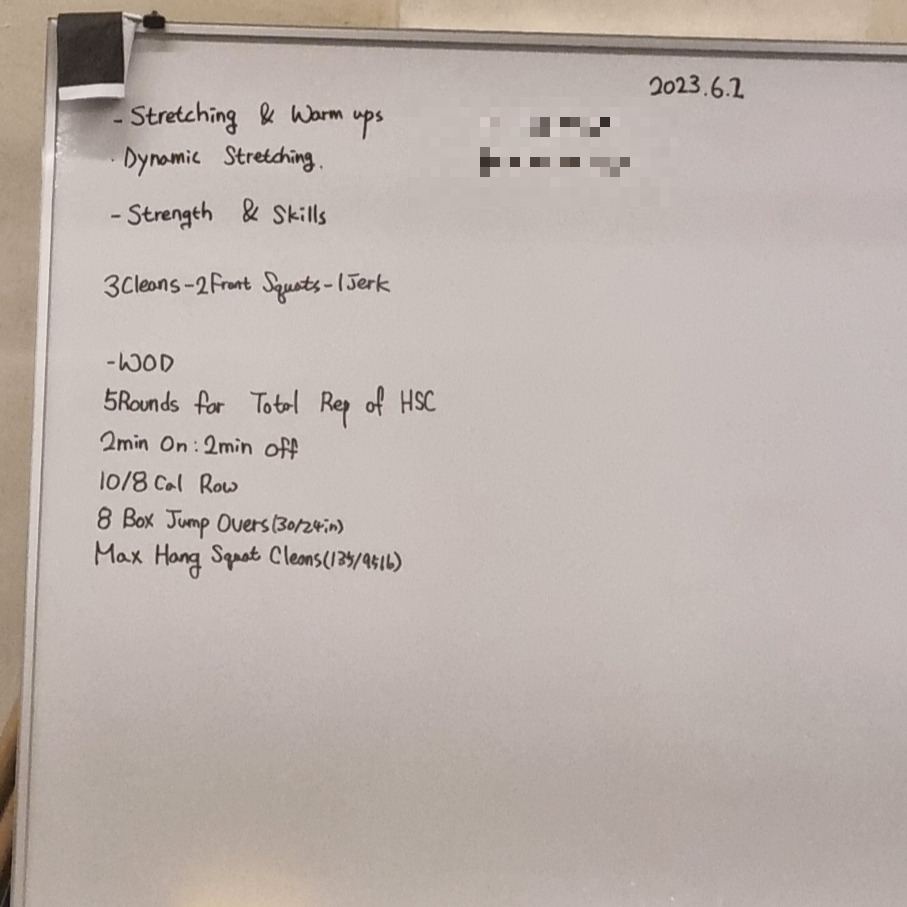 2023.6.2
- Stretching & Warm ups
· Dynamic Stretching.
- Strength & Skills
3Cleans-2Front Squats-1Jerk
-WOD
5Rounds for Total Rep of HSC
2min On:2min off
10/8 Cal Row
8 Box Jump Overs(30/24in)
Max Hang Squat Cleans(135/95lb)